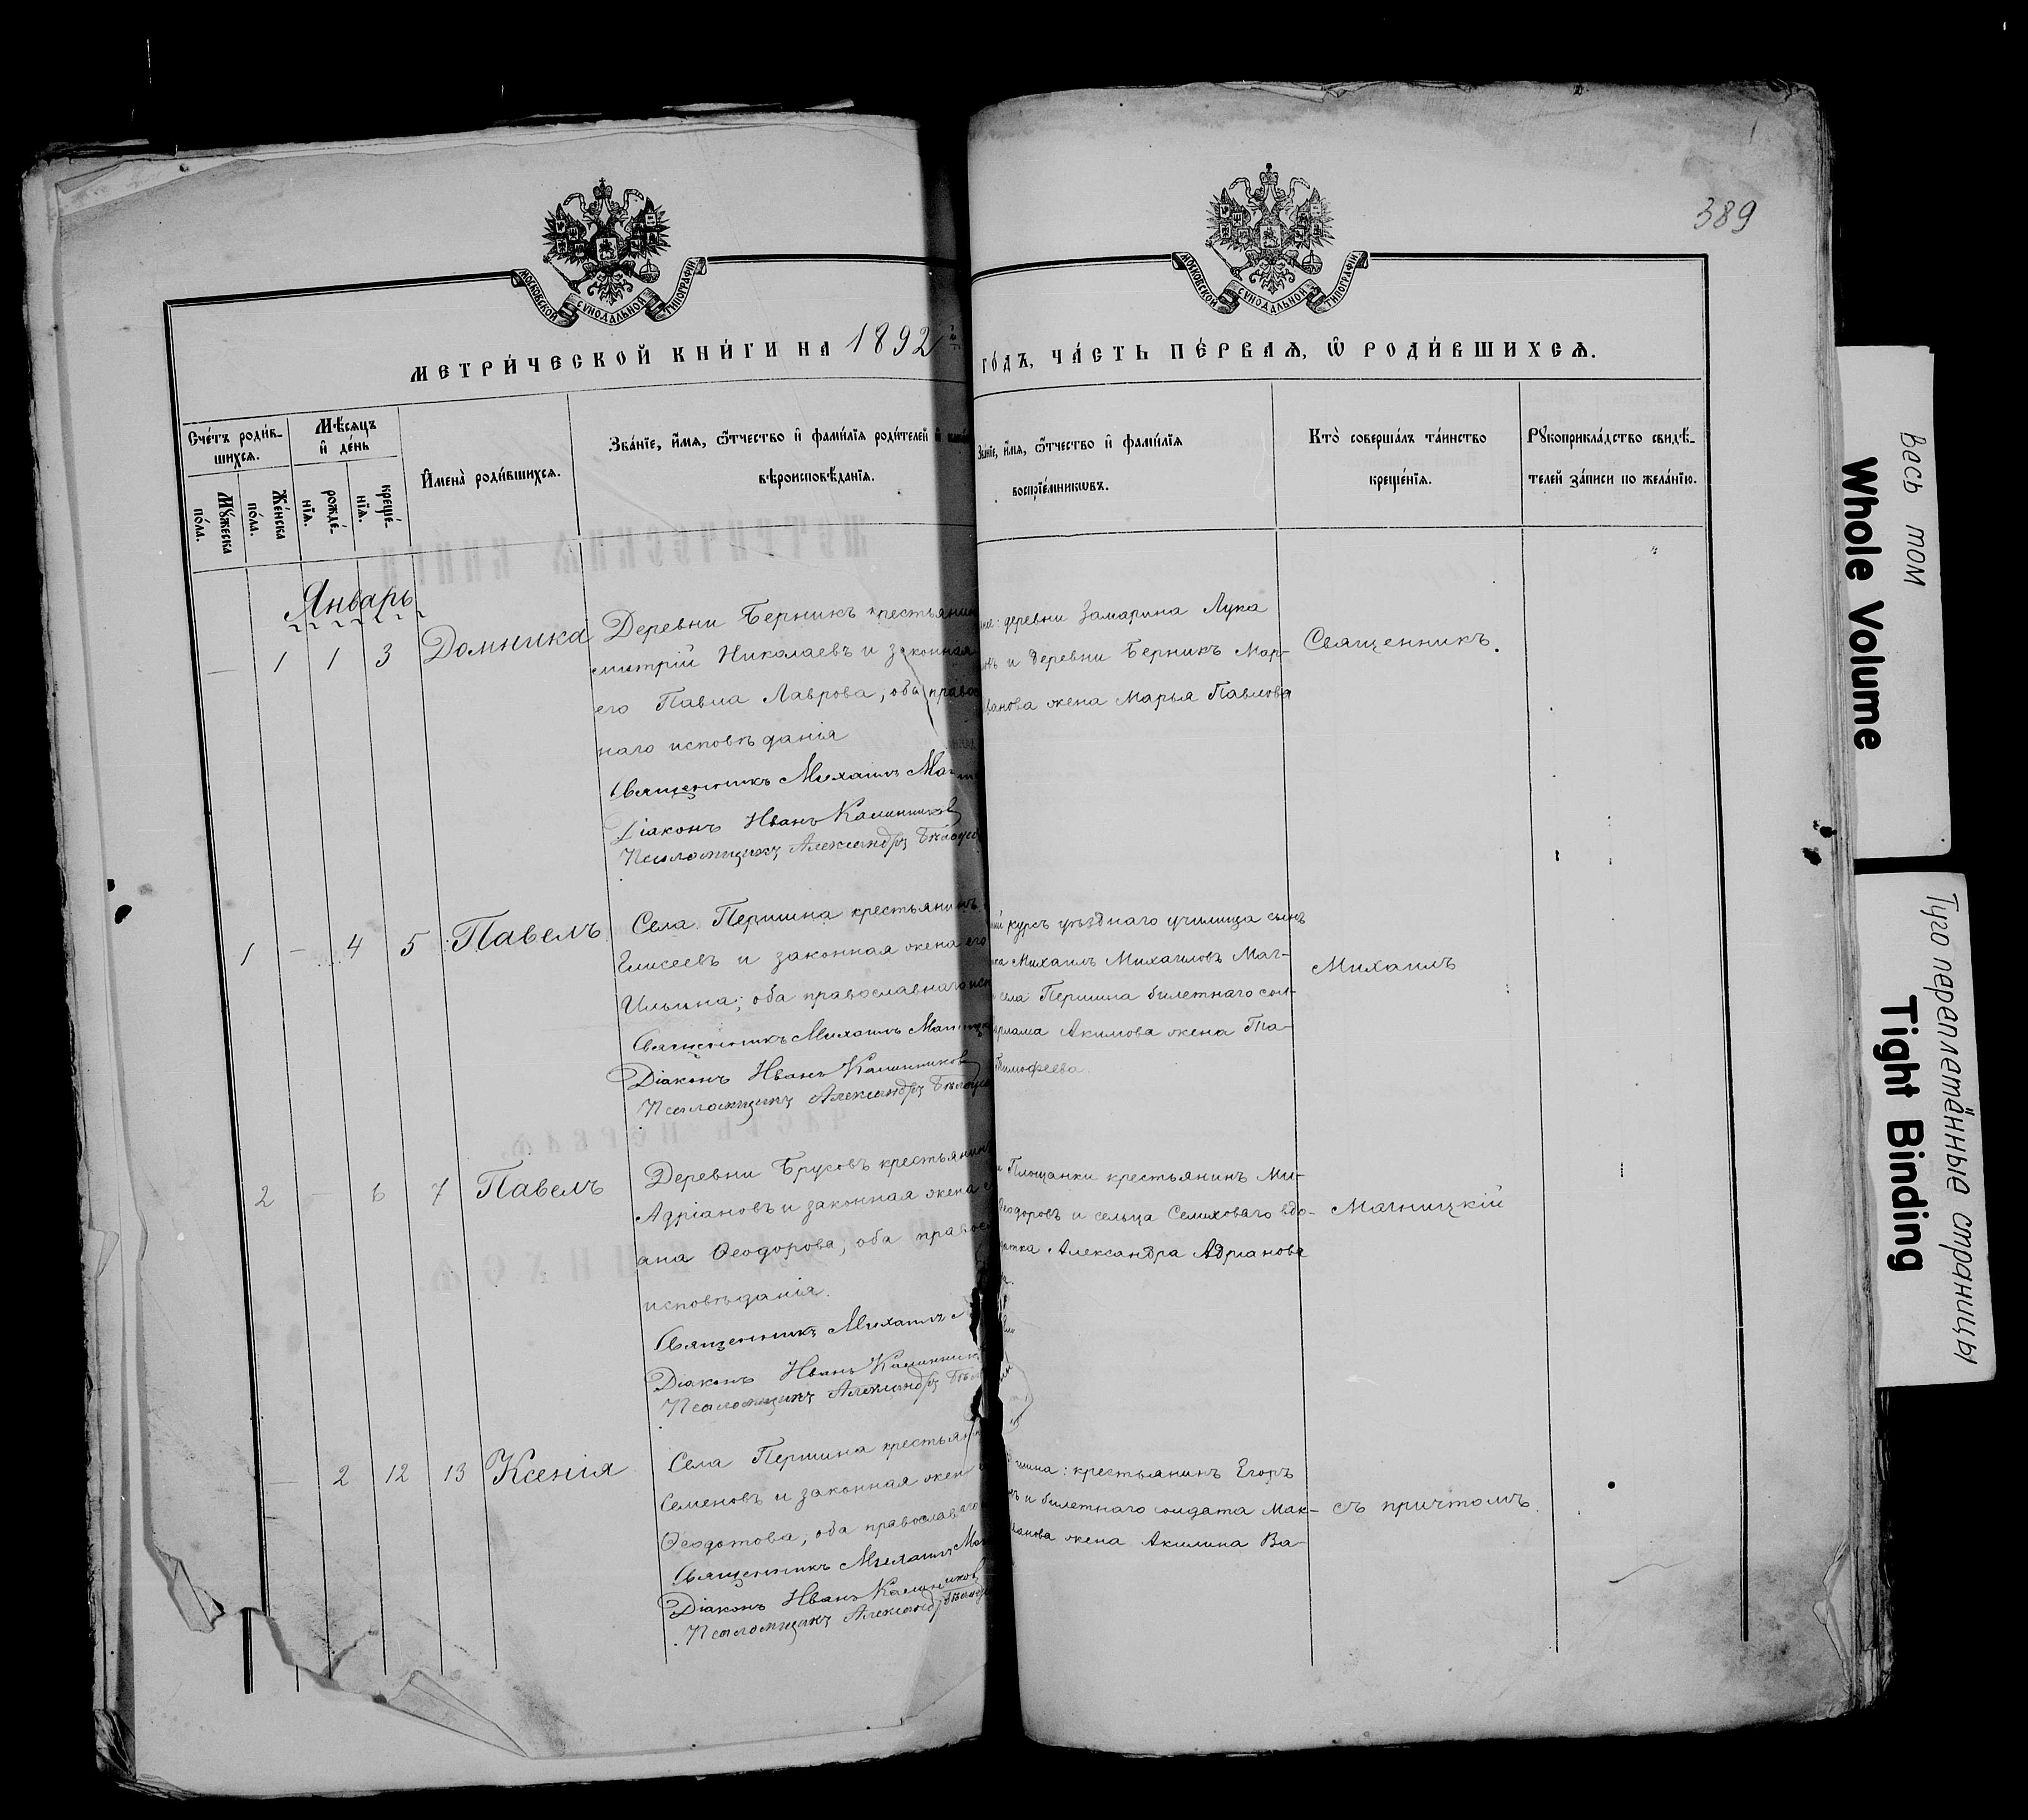 389
МОСКОВСКОЙ СѴНОДАЛЬНОЙ ТИПОГРАФІИ
МОСКОВСКОЙ СѴНОДАЛЬНОЙ ТИПОГРАФІИ
МЕТРИ́ЧЕСКОЙ КНИ́ГИ НА 1892
ГО́ДЪ, ЧА́СТЬ ПЕ́РВАѦ, Ѽ РОДИ́ВШИХСѦ.
Сче́тъ роди́в-
шихсѧ.
Мѣ́сѧцъ
и҆ де́нь
Мꙋ́жеска
по́ла.
Же́нска
по́ла.
рожде́-
нїѧ.
креще́-
нїѧ.
И҆мена̀ роди́вшихсѧ.
Зва́нїе, и҆́мѧ, ѻ҆́тчество и҆ фами́лїѧ роди́телей и҆
вѣроисповѣ́данїѧ.
Зва́нїе, и҆́мѧ, ѻ҆́тчество и҆ фами́лїѧ
воспрїе́мникѡвъ.
Кто̀ соверша́лъ та́инство
креще́нїѧ.
Рꙋкоприкла́дство свидѣ́-
телей за́писи по жела́нїю.
Январь
— 1 1 3 Домника
Деревни Берникъ крестьянин
митрій Николаевъ и законная
его Павла Лаврова, оба право
наго исповѣданія
Священникъ Михаилъ Маг
Діаконъ Иванъ Калинников
Псаломщикъ Александръ Бѣлоус
деревни Замарина Лука
и деревни Берникъ Мар-
Иванова жена Марья Павлова
Священникъ.
1 — 4 5 Павелъ
Села Першина крестьянинъ
Елисеевъ и законная жена его
Ильина; оба православнаго исп
Священникъ Михаилъ Магницк
Діаконъ Иванъ Калинников
Псаломщикъ Александръ Бѣлоус
курсъ уѣзднаго училища сынъ
Михаилъ Михаиловъ Маг-
села Першина билетнаго сол-
Акимова жена Та-
Тимофеева.
Михаилъ
2 — 6 7 Павелъ
Деревни Брусовъ крестьянин
Адріановъ и законная жена е
ана Ѳеодорова, оба правос
исповѣданія.
Священникъ Михаилъ М
Діаконъ Иванъ Калинник
Псаломщикъ Александръ Бѣл
и Площанки крестьянинъ Ми-
Ѳеодоровъ и сельца Селиховаго вдо-
Александра Адрианова
Магницкій
— 2 12 13 Ксенія
Села Першина крестьян
Семеновъ и законная жен
Ѳеодотова, оба православнаго
Священникъ Михаилъ Маг
Діаконъ Иванъ Калинников
Псаломщикъ Александръ Бѣлоус
шина: крестьянинъ Егоръ
и билетнаго солдата Мак-
жена Акилина Ва-
съ причтомъ.
Весь том
Whole Volume
Туго переплетённые страницы
Tight Binding